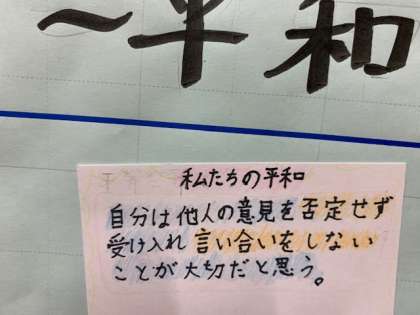 ～平和
私たちの平和
自分は他人の意見を否定せず
受け入れ言い合いをしない
ことが大切だと思う。